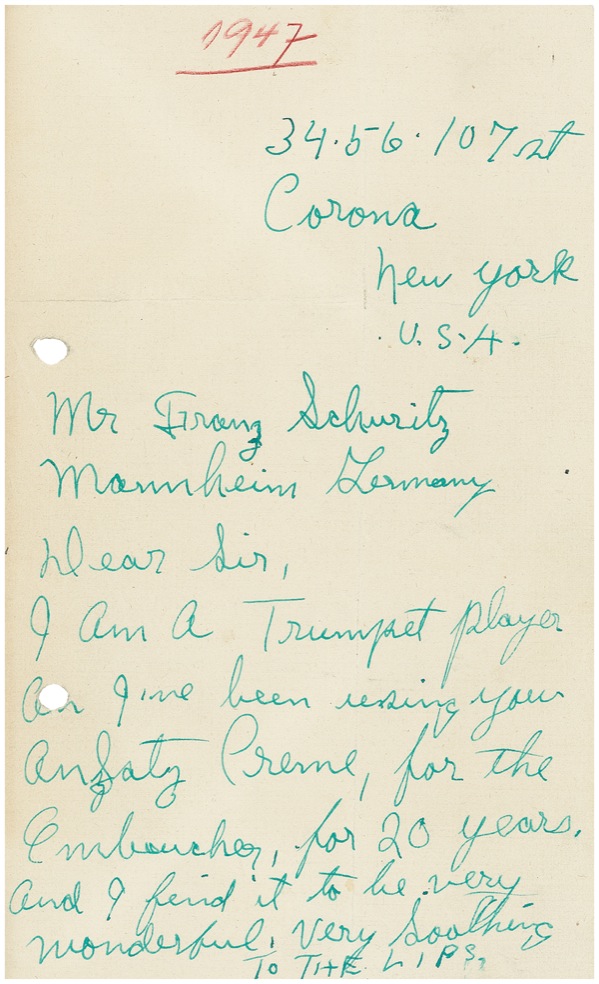 1947
34.56.107 st
Corona
New York
. U. S. A.
Mr Franz Schuritz
Mannheim Germany
Dear Sir,
I Am A Trumpet player
An I've been using your
Ansatz Creme, for the
Emboucher, for 20 years.
And I find it to be very
wonderful. Very Soothing
TO THE LIPS.